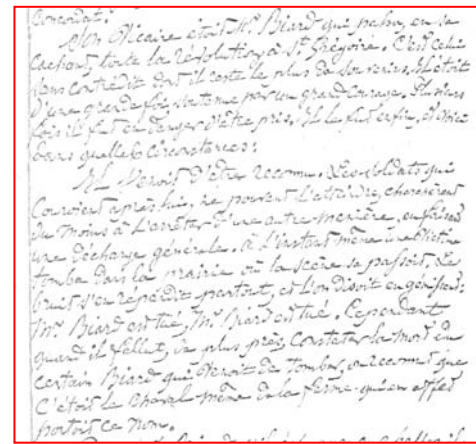 Concordat.
Mon Vicaire étoit Mr. Biard qui passa, en se
cachant, toute la révolution à St. Grégoire. C'est celui
sans contredit dont il reste le plus de souvenirs. Il étoit
d'une grande foi, soutenue par un grand courage. Plusieurs
fois il fut en danger d'être pris. Il le fut enfin, et voici
dans quelles circonstances :
Il venoit d'être reconnu. Les soldats qui
couroient après lui, ne pouvant l'atteindre, cherchèrent
du moins à l'arrêter d'une autre manière, en faisant
une décharge générale. à l'instant même une victime
tomba dans la prairie où la scène se passoit. Le
bruit s'en répandit partout, et l'on disoit en gémissant :
Mr. Biard est tué, Mr. Biard est tué. Cependant
quand il fallut, de plus près, constater la mort du
certain Biard qui venoit de tomber, on reconnut que
c'étoit le cheval même de la ferme qui en effet
portoit ce nom.